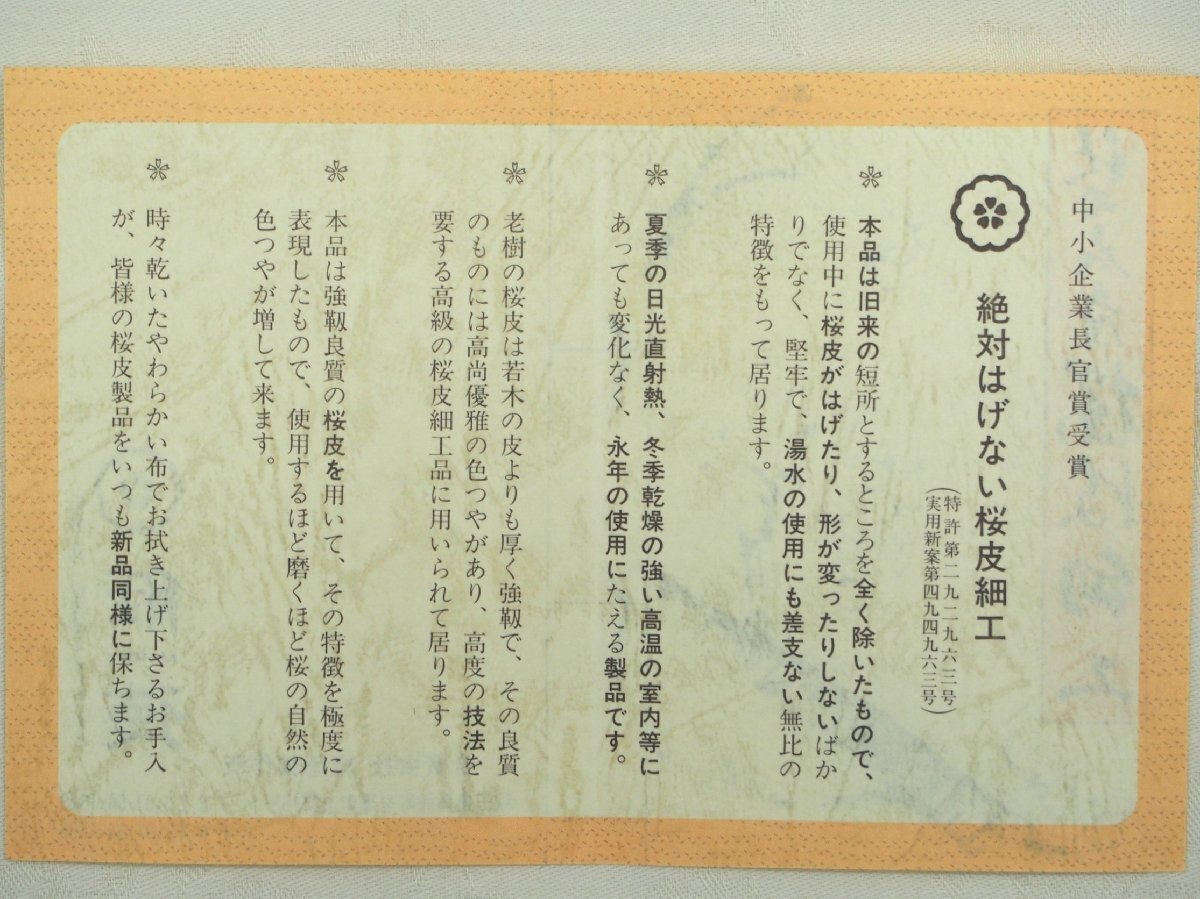 中小企業長官賞受賞
絶対はげない桜皮細工
(特許第二九二九六三号
実用新案第四九四九六三号)
本品は旧来の短所とするところを全く除いたもので、
使用中に桜皮がはげたり、形が変ったりしないばか
りでなく、堅牢で、湯水の使用にも差支ない無比の
特徴をもって居ります。
夏季の日光直射熱、冬季乾燥の強い高温の室内等に
あっても変化なく、永年の使用にたえる製品です。
老樹の桜皮は若木の皮よりも厚く強靱で、その良質
のものには高尚優雅の色つやがあり、高度の技法を
要する高級の桜皮細工品に用いられて居ります。
本品は強靱良質の桜皮を用いて、その特徴を極度に
表現したもので、使用するほど磨くほど桜の自然の
色つやが増して来ます。
時々乾いたやわらかい布でお拭き上げ下さるお手入
が、皆様の桜皮製品をいつも新品同様に保ちます。